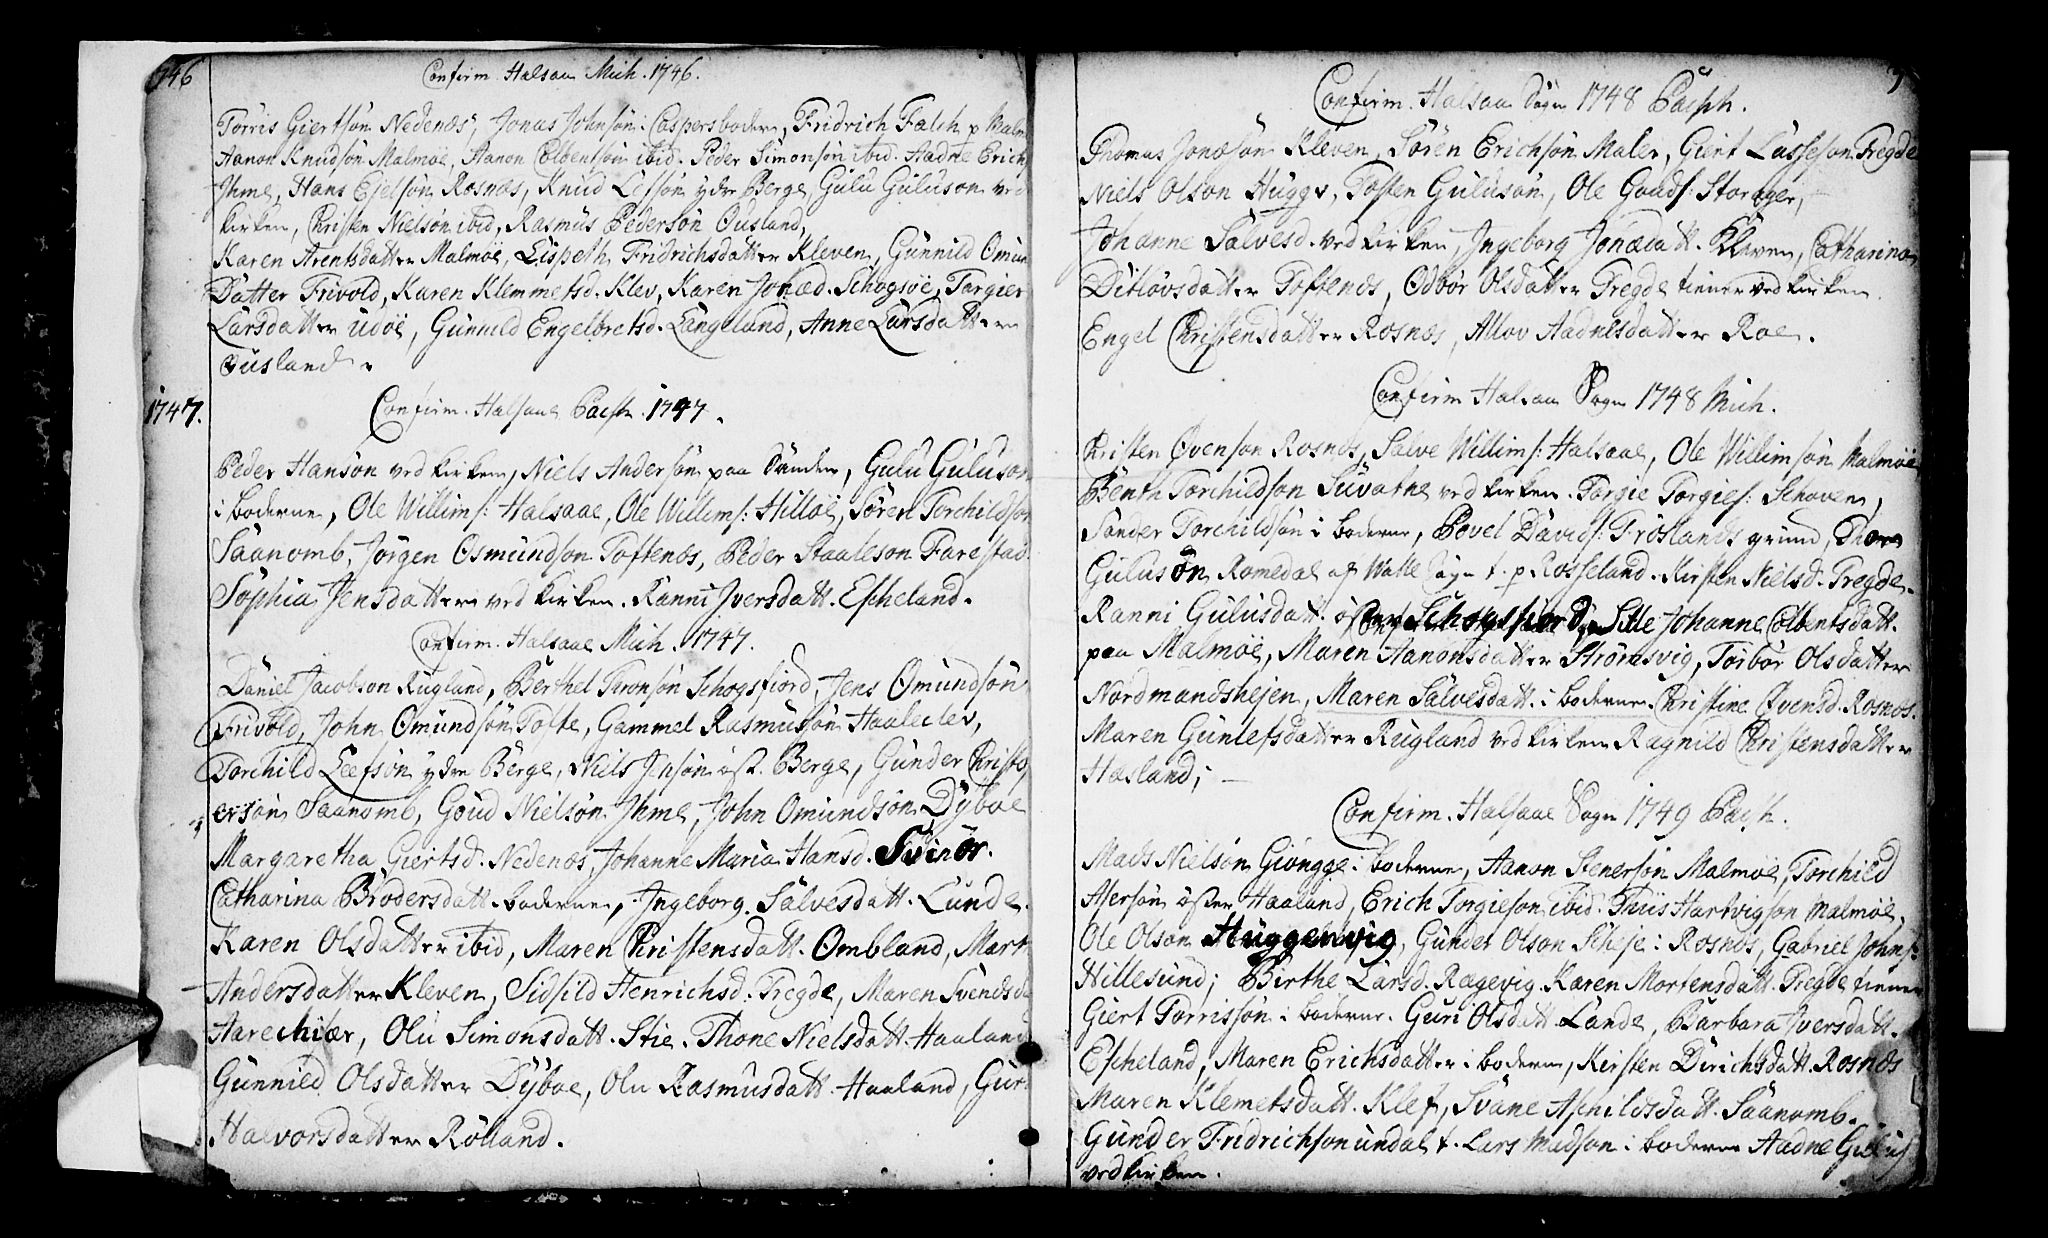 1746
Confirm. Halsaa Mich. 1746.
Torris Giertsøn Nedenæs, Jonas Johnsøn i Caspersboderne, Fridrich Falch p Malm
Aanon Knudsøn Malmøe, Aanon Colbentsøn ibid. Peder Simonsøn ibid. Aadne Erich
Ihme, Hans Ejelsøn Rosnæs, Knud Lefsøn ydre Berge, Gulu Guluson ved
kirken, Christen Nielsøn ibid, Rasmus Pedersøn Ousland,
Karen Arentsdatter Malmøe, Lispeth Fridrichsdatter Kleven, Gunnild Omun
Datter Frivold, Karen Klemmetsd. Klev, Karen Jonæd. Schogsøe, Torgier
Larsdatter Udøe, Gunnild Engelbretsd. Langeland, Anne Larsdatter
Ousland.
1747.
Confirm. Halsaae Pasch. 1747.
Peder Hansøn ved kirken, Niels Andersøn paa Sanden, Gulu Guluson
i boderne, Ole Willims: Halsaae, Ole Willims: Hilløe, Søren Torchildsøn
Saanomb, Jørgen Osmundson Toftenæs, Peder Staaleson Farestad.
Sophia Jensdatter ved kirken. Ranni Iversdatt. Escheland.
Confirm. Halsaae Mich. 1747.
Daniel Jacobson Rugland, Berthel Tronsøn Schogsfiord, Jens Omundsøn
Frivold, John Omundsøn Tofte, Gammel Rasmusøn Haaleclev,
Torchild Leefsøn ydre Berge, Niels Jensøn øst. Berge, Gunder Christo
ersøn Saanomb, Goud Nielsøn Ihme, John Omundsøn Dyboe
Margaretha Giertsd. Nedenæs, Johanne Maria Hansd. Svinør.
Catharina Brodersdatt. boderne, Ingeborg Salvesdatt. Lunde.
Karen Olsdatter ibid, Maren Christensdatt. Ombland, Mart
Andersdatter Kleven, Sidsild Henrichsd. Tregde, Maren Svendsda
Aarechiær, Olu Simonsdatt. Stie. Thone Nielsdatt. Haaland
Gunnild Olsdatter Dyboe, Olu Rasmusdatt. Haaland, Guri
Halvorsdatter Rølland.
Confirm. Halsaa Sogn 1748 Pasch.
Thomas Jonæsøn Kleven, Søren Erichsøn Maler, Giert Lasseson Tregde
Niels Olson Huggs, Tosten Gulusøn, Ole Gouds: Storager,
Johanne Salvesd. ved kirken, Ingeborg Jonædatt. Kleven, Catharina
Ditløvsdatter Toftenæs, Odbør Olsdatter Tregde tiener ved kirken.
Engel Christensdatter Rosnæs, Allov Aadnesdatter Roe.
Confirm Halsaa Sogn 1748 Mich.
Christen Ovenson Rosnæs, Salve Willims: Halsaae, Ole Willimsøn Malmøe
Benth Torchildson Suvathe ved kirken. Torgie Torgies: Schoven,
Sander Torchildsøn i boderne, Povel Davids: Frøslands grund,
Guluson Romedal af Walle Sogn t. p Rosseland. Kirsten Nielsd. Tregde.
Ranni Gulusdatt. Schogsfiord, Sille Johanne Colbentsdatt.
paa Malmøe, Maren Aanonsdatter Strømsvig, Torbør Olsdatter
Nordmandshejen, Maren Salvesdatt. i boderne. Christine Ovensd. Rosnæs.
Maren Gunlefsdatter Rugland ved kirken Ragnild Christensdatter
Hæsland;
Confirm. Halsaae Sogn 1749 Pasch.
Mads Nielsøn Giøngge i boderne, Aanon Stenersøn Malmøe, Torchild
Asersøn øster Haaland, Erich Torgieson ibid. Thiis Hartvigson Malmøe.
Ole Olson Huggenvig, Gunder Olson Scheje i Rosnæs, Gabriel Johns:
Hillesund; Birthe Larsd. Rægevig. Karen Mortensdatt. Tregde tiener
Giert Torrissøn i boderne. Guri Olsdatt. Lande, Barbara Iversdatt.
Escheland, Maren Erichsdatter i boderne, Kirsten Dirichsdatt. Rosnæs
Maren Klemetsdatt. Klef, Svane Aschildsdatt. Saanomb.
Gunder Fridrichson undal t. Lars Madson i boderne Aadne Gulus
ved kirken.